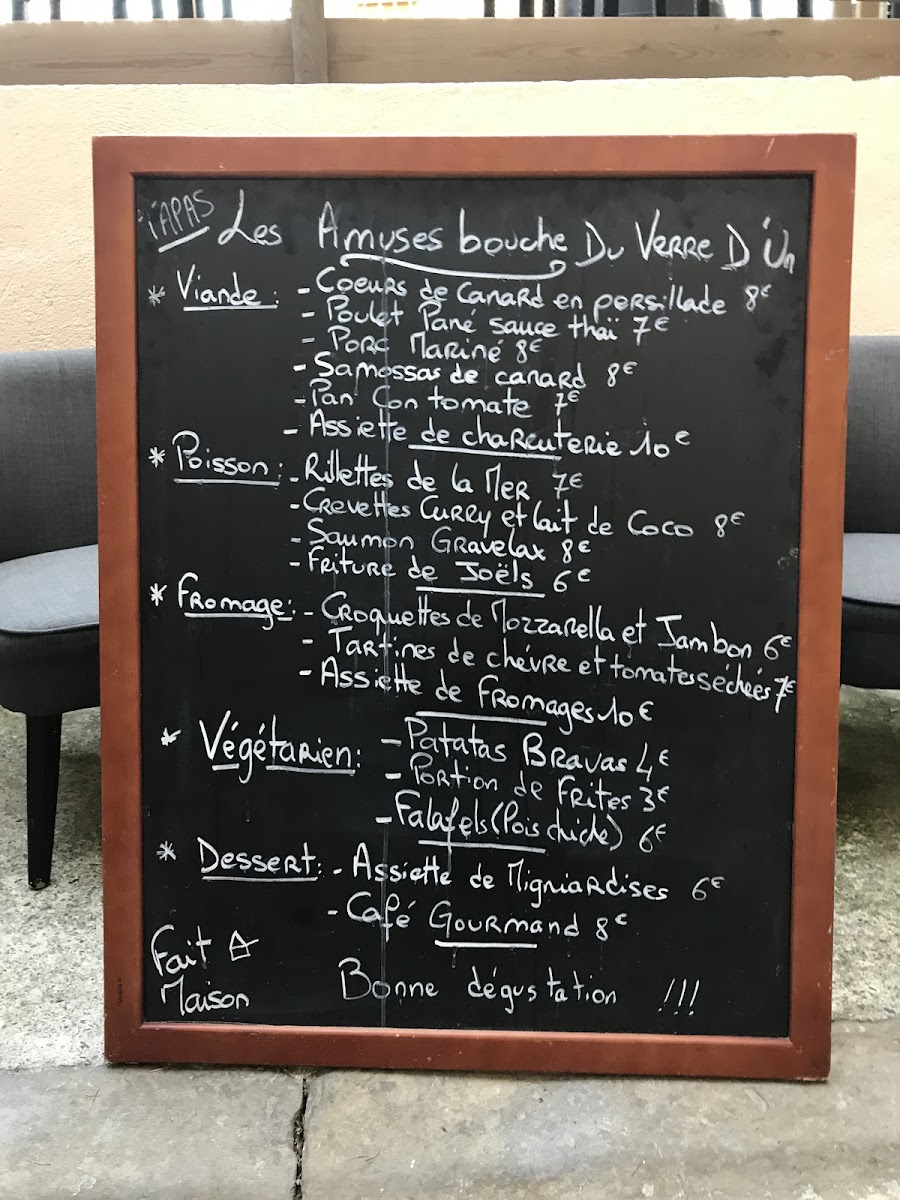 TAPAS Les Amuses bouche Du Verre D'Un
* Viande : - Coeurs de canard en persillade 8€
- Poulet Pané sauce thaï 7€
- Porc Mariné 8€
- Samossas de canard 8€
- Pan Con tomate 7€
- Assiette de charcuterie 10€
* Poisson : - Rillettes de la Mer 7€
- Crevettes Curry et lait de Coco 8€
- Saumon Gravelax 8€
- Friture de Joëls 6€
* Fromage : - Croquettes de Mozzarella et Jambon 6€
- Tartines de chévre et tomates séchées 7€
- Assiette de Fromages 10€
* Végétarien : - Patatas Bravas 4€
- Portion de Frites 3€
- Falafels (Pois chiche) 6€
* Dessert : - Assiette de Migniardises 6€
- Café Gourmand 8€
Fait
Maison
Bonne dégustation !!!